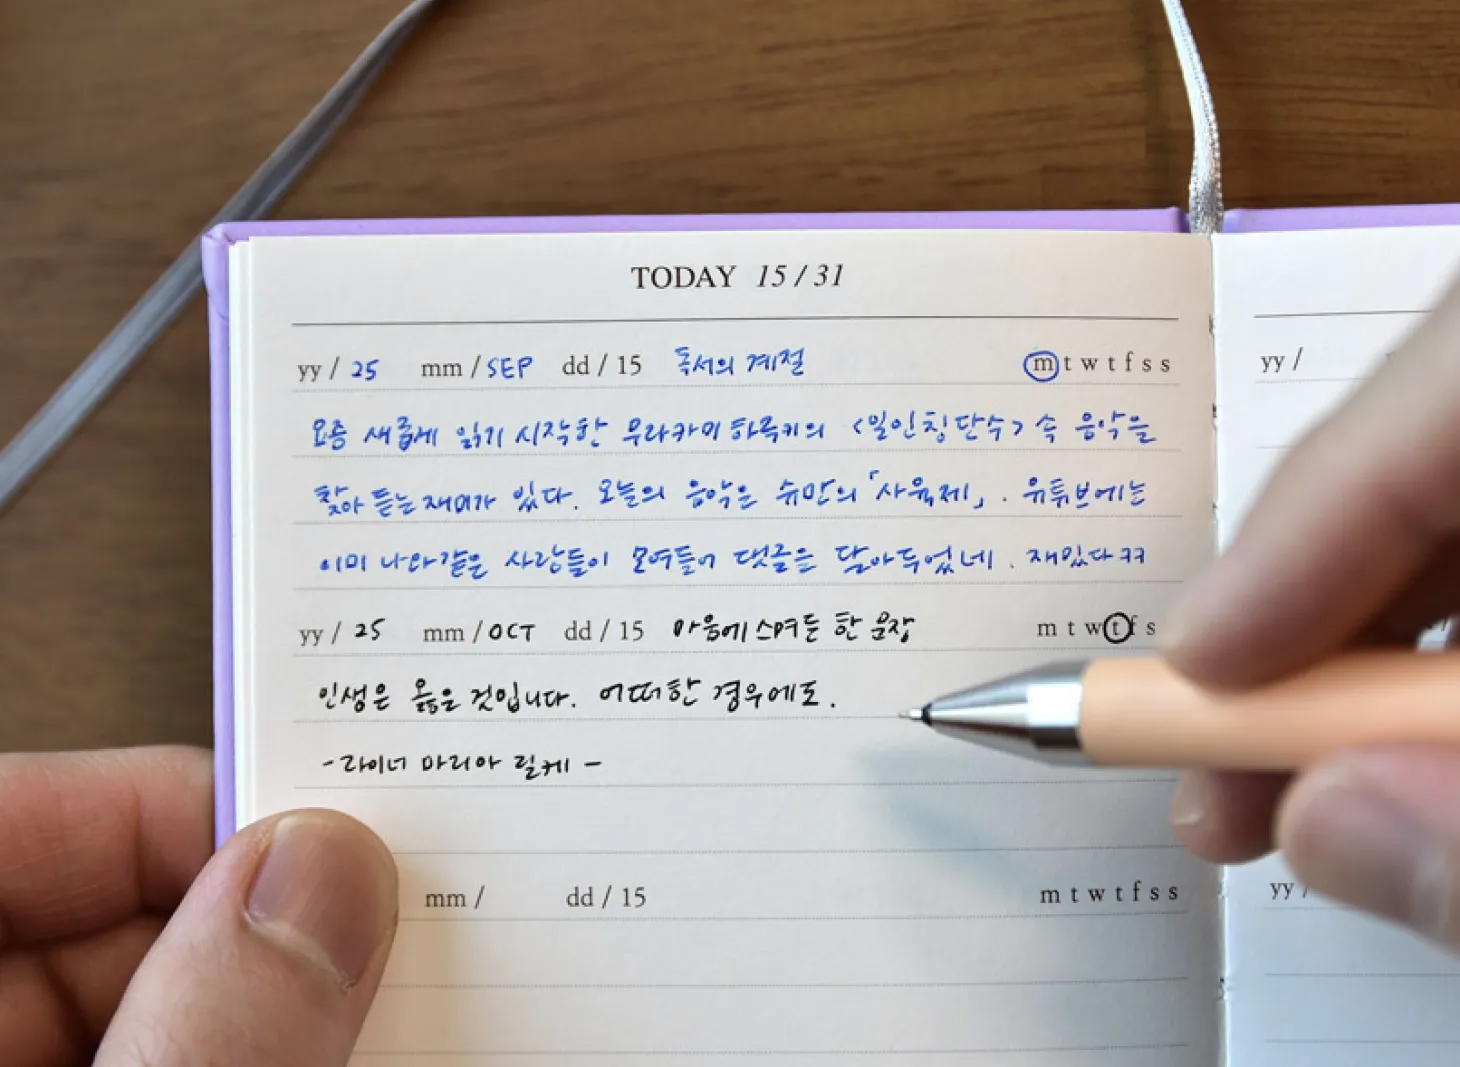 TODAY 15 / 31
yy / 25 mm / SEP dd / 15 독서의 계절 m t w t f s s
요즘 새롭게 읽기 시작한 무라카미 하루키의 <일인칭단수> 속 음악을
찾아 듣는 재미가 있다. 오늘의 음악은 슈만의 「사육제」. 유튜브에는
이미 나와같은 사람들이 모여들어 댓글을 달아두었네. 재밌다ㅋㅋ
yy / 25 mm / OCT dd / 15 마음에 스며든 한 문장 m t w t f s
인생은 옳은 것입니다. 어떠한 경우에도.
- 라이너 마리아 릴케 -
mm / dd / 15 m t w t f s s
yy /
yy /